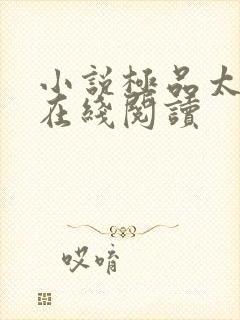 小説極品太
在綫閱讀
哎唷